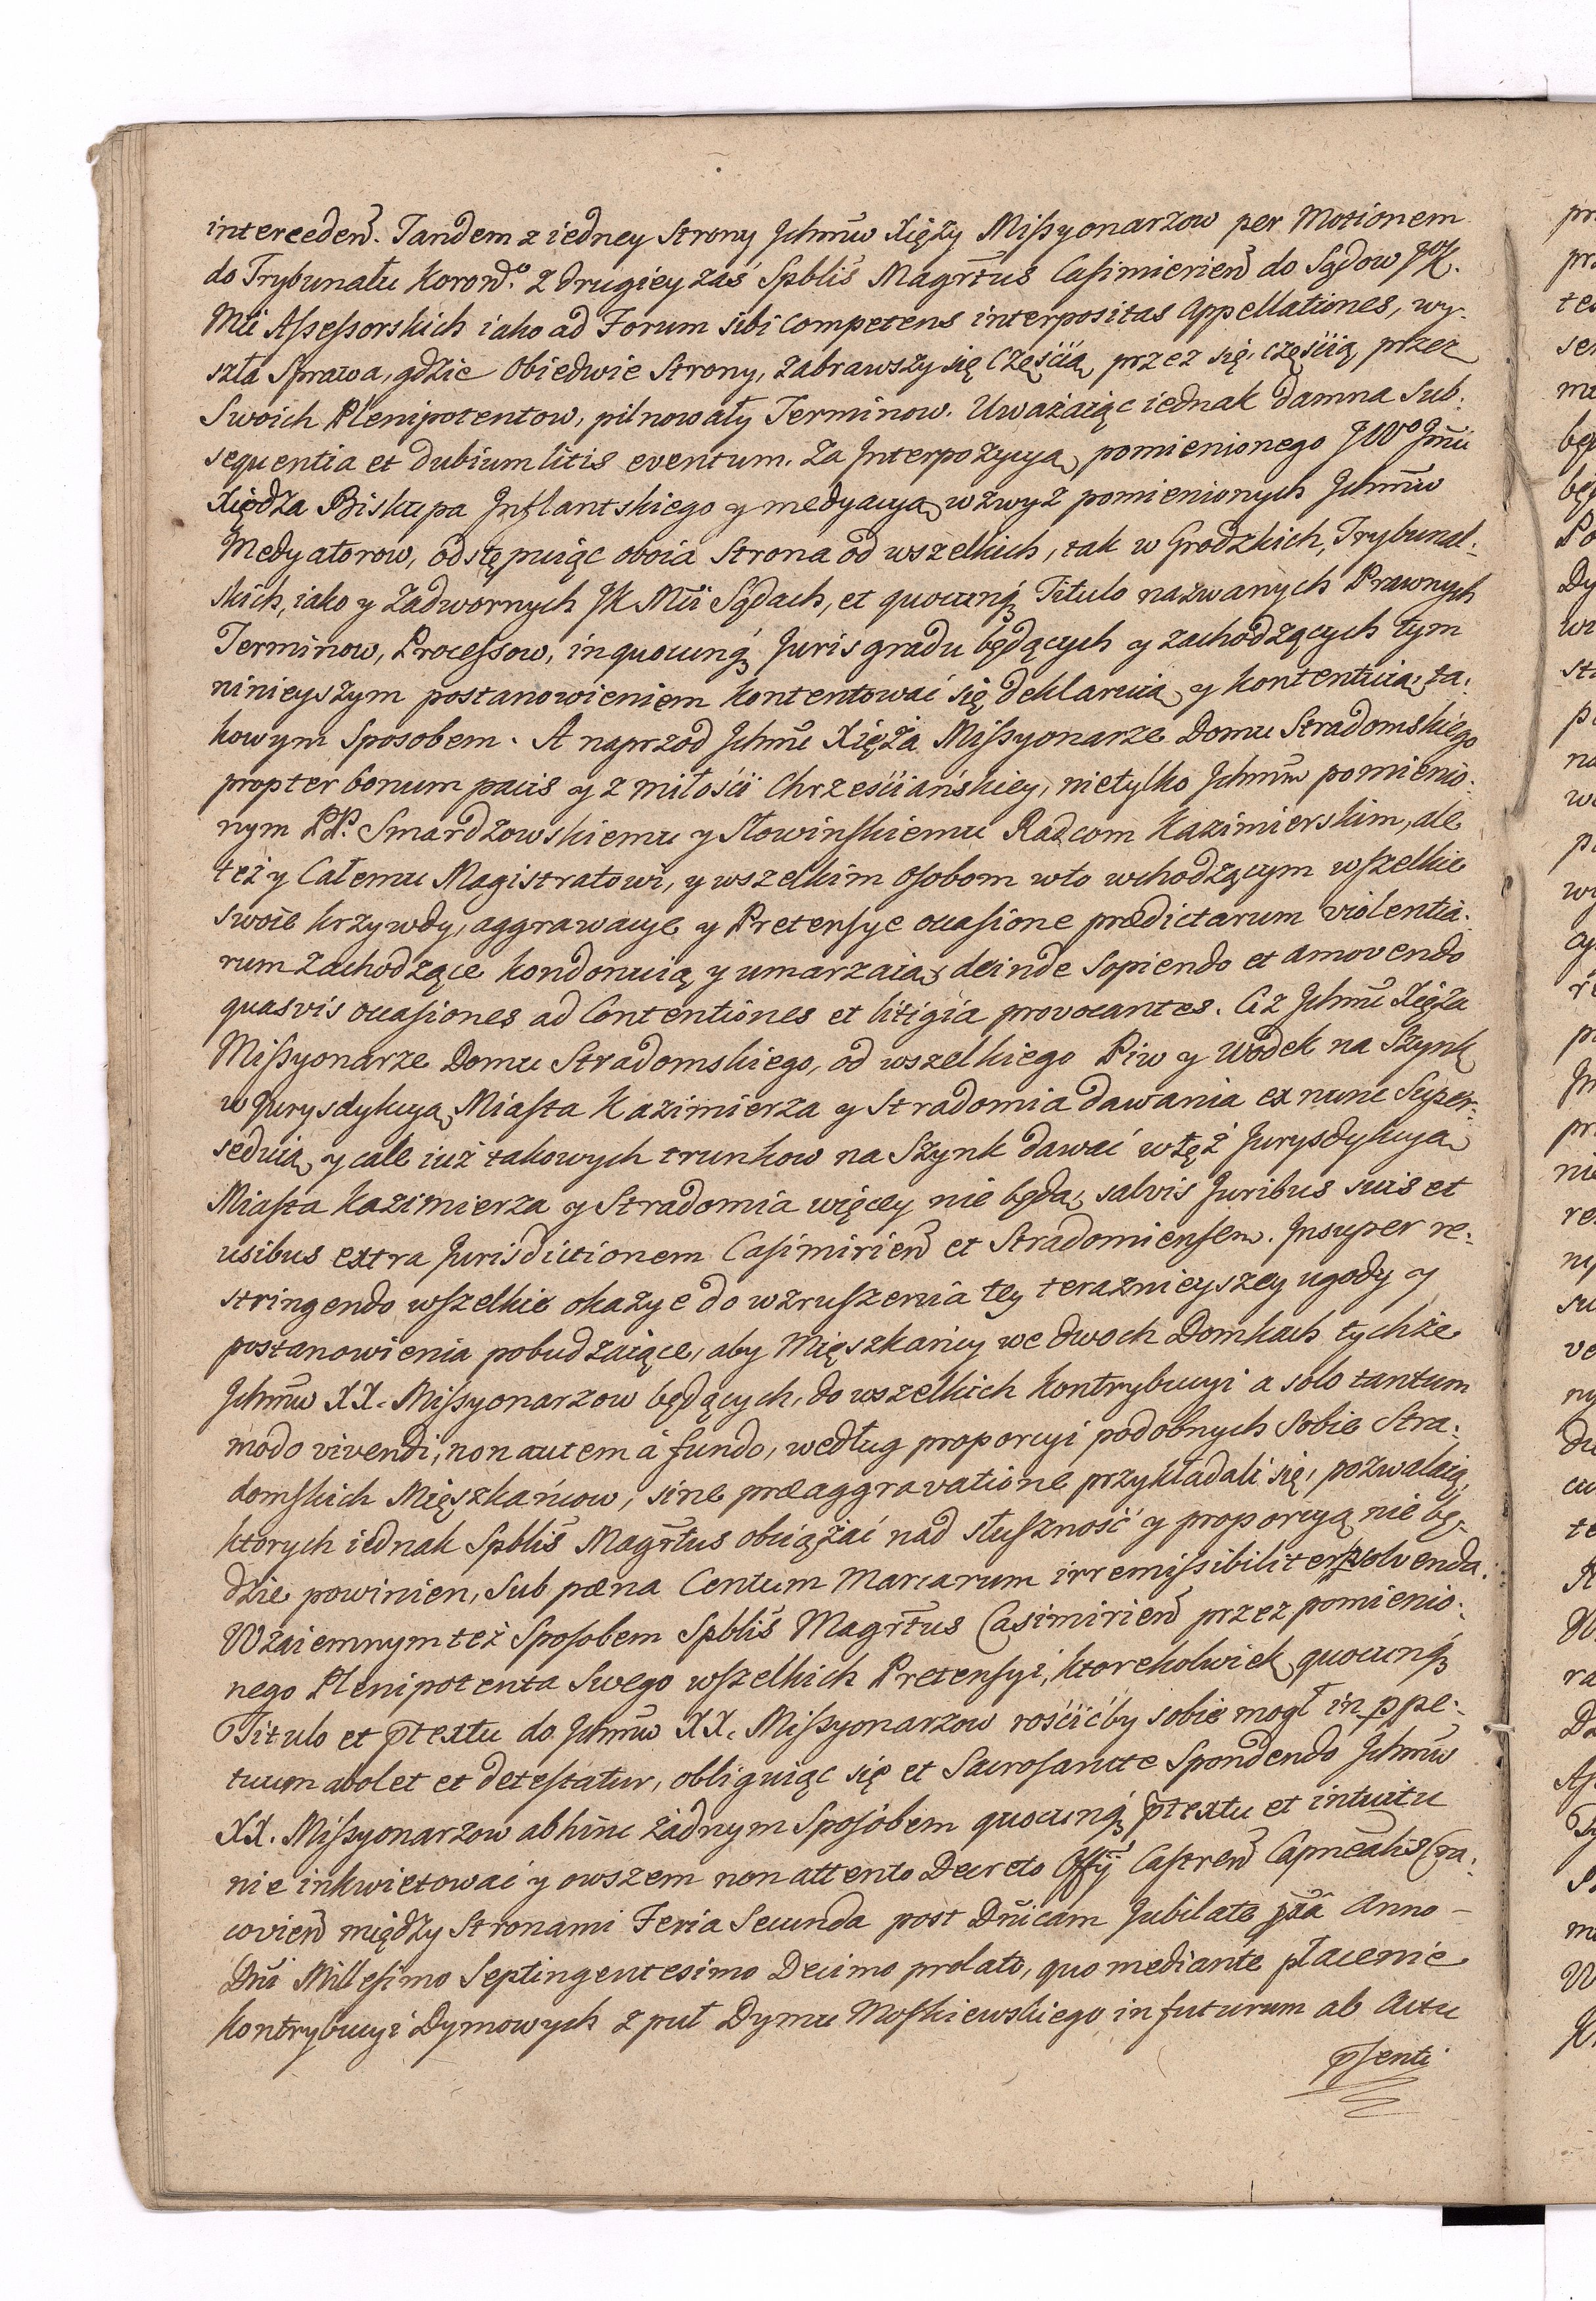 interceden̄. Tandem z iedney Strony Ichmūw Xięży Missyonarzow per Motionem
do Trybunału Koron̄.º z drugiey zaś Spbliš Magr̄tus Casimierien̄ do Sądow JK.
Mci Assessorskich iako ad Forum sibi Competens interpositas Appellationes, wy-
szła Sprawa, gdzie Obiedwie Strony, zabrawszy się częścią przez się, częścią przez
Swoich Plenipotentow, pilnowały Terminow. Uważaiąc iednak damna Sub-
sequentia et dubium litis eventum. Za Interpozycyą pomienionego JWº Jm̄ci
Xiędza Biskupa Inflantskiego y medyacyą wzwyż pomienionych Ichmūw
Medyatorow, odstępuiąc oboia Strona od wszelkich, tak w Grodzkich, Trybunal-
skich, iako y Zadwornych JK Mci Sądach, et quocunq́ Titulo nazwanych Prawnych
Terminow, Processow, in quocunq́ Juris gradu będących y zachodzących tym
ninieyszym postanowieniem kontentować się deklaruią y kontentuią ta-
kowym Sposobem. A naprzod Ichmū Xięża Missyonarze Domu Stradomskiego
propter bonum pacis y z miłości Chrześciańskiey, nietylko Ichmūw pomienio-
nym PP. Smardzowskiemu y Słowinskiemu Radcom Kazimierskim, ale
też y Całemu Magistratowi, y wszelkim Osobom wto wchodzącym wszelkie
swoie krzywdy, aggrawacye y Pretensye occasione prædictarum violentia-
rum zachodzące kondonuią y umarzaią, deinde Sopiendo et amovendo
quasvis occasiones ad Contentiones et litigia provocantes. Ciż Ichmū Xięża
Missyonarze Domu Stradomskiego, od wszelkiego Piw y Wodek na Szynk
w Jurysdykcyą Miasta Kazimierza y Stradomia dawania ex nunc Super-
seduią y cale iuż takowych trunkow na Szynk dawać w też Jurysdykcyą
Miasta Kazimierza y Stradomia więcey nie będą, salvis Juribus suis et
usibus extra Jurisdictionem Casimirien̄ et Stradomiensem. Insuper re-
stringendo wszelkie okazye do wzruszenia tey teraznieyszey ugody y
postanowienia pobudzaiące, aby Mięszkańcy we dwoch Domkach tychże
Ichmūw XX. Missyonarzow będących, do wszelkich kontrybucyi a solo tantum
modo vivendi, non autem à fundo, według proporcyi podobnych Sobie Stra-
domskich Mięszkańcow, sine præaggravatione przykładali się, pozwalaią
ktorych iednak Spbliš Magr̄tus obciążać nad słuszność y proporcyą nie bę-
dzie powinien, Sub pœna Centum Marcarum irremissibiliter solvenda.
Wzaiemnym też Sposobem Spbliš Magr̄tus Casimirien̄ przez pomienio-
nego Plenipotenta Swego wszelkich Pretensyi, ktorekolwiek quocunq́
Titulo et p̄textu do Ichmūw XX. Missyonarzow rościćby sobie mogł in ppe-
tuum abolet et detestatur, obliguiąc się et Sacrosancte Spondendo Ichmūw
XX. Missyonarzow abhinc żadnym Sposobem quocunq́ p̄textu et intuitu
nie inkwietować y owszem non attento Decreto Offij Castren̄ Capnealis Cra-
covien̄ między Stronami Feria Secunda post Dn̄icam Jubilate p̄ra Anno -
Dn̄i Millesimo Septingentesimo Decimo prolato, quo mediante płacenie
kontrybucyi Dymowych z puł Dymu Moskiewskiego in futurum ab Actu
p̄senti